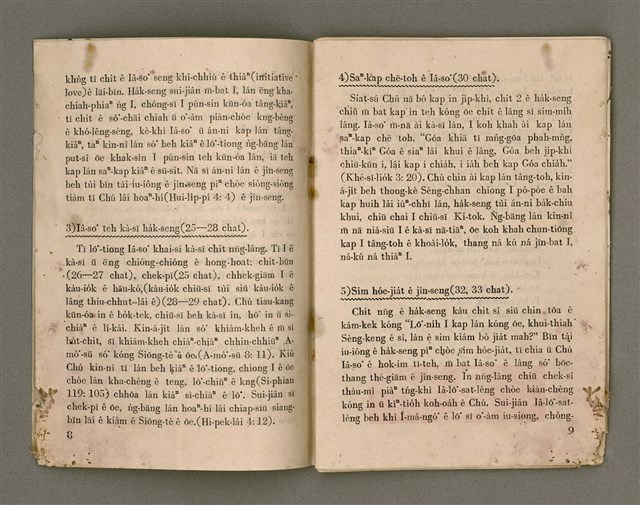 khǹg tī chit ê Iâ-so͘ seng khí-chhiú ê thiàⁿ(initiative
love)ê lāi-bīn. Ha̍k-seng sui-jiân m̄ bat I, lán êng kha-
chiah-phiaⁿ ǹg I, chóng-sī I pún-sin kūn-óa tâng-kiâⁿ,
tī chit ê só͘-chāi chiah ū o͘-àm piàn-chòe kng-bêng
ê khó-lêng-sèng, kè-khì Iâ-so͘ ū án-ni kap lán tâng-
kiâⁿ, taⁿ kin-nî lán só͘ beh kiâⁿ ê lō͘-tiong n̄g-bāng lán
put-sî òe khak-sìn I pún-sin teh kūn-óa lán, iā teh
kap lán saⁿ-kap kiâⁿ ê sū-si̍t. Nā sī án-ni lán ê jîn-seng
beh tùi bīn tāi-iu-iông ê jîn-seng pìⁿ chòe siông-siông
tiàm tī Chú lāi hoaⁿ-hí(Hui-li̍p-pí 4: 4) ê jîn-seng.
3)Iâ-so͘ teh kà-sī ha̍k-seng(25—28 chat).
Tī lō͘-tiong Iâ-so͘ khai-sí kà-sī chit nn̄g-lâng. Tī I ê
kà-sī ū ēng chióng-chióng ê hong-hoat; chit-būn
(26—27 chat), chek-pī(25 chat), chhek-giām I ê
kàu-io̍k ê hāu-kó,(kàu-io̍k chiū-sī túi siū kàu-io̍k ê
lâng thiu-chhut—lâi ê)(28—29 chat). Chú tiau-kang
kūn-óa in ê bo̍k-tek, chiū-sī beh kà-sī in, hō͘ in ū sì-
chiàⁿ ê lí-kái. Kin-á-ji̍t lán só͘ khiàm-kheh ê m̄ sī
bu̍t-chit, sī khiàm-kheh chiâⁿ-chiàⁿ chhin-chhiūⁿ A-
mô͘-sū só͘ kóng Siōng-tè ê ōe.(A-mô͘-sū 8: 11). Kiû
Chú kin-nî tī lán beh kiâⁿ ê lō͘-tiong, chiong I ê ōe
chòe lán kha-chêng ê teng, lō͘-chiūⁿ ê kng(Si-phian
119: 105) chhōa lán kiâⁿ sì-chiàⁿ ê lō͘. Sui-jiân sī
chek-pī ê ōe, n̄g-bāng lán hoaⁿ-hí lâi chiap-siū siang-
bīn lāi ê kiàm ê Siōng-tè ê ōe.(Hi-pek-lâi 4: 12).
8
4)Saⁿ-kap chē-toh ê Iâ-so͘(30 chat).
Siat-sú Chú nā bô kap in ji̍p-khì, chit 2 ê ha̍k-seng
chiū m̄ bat kap in teh kóng ōe chit ê lâng sī sím-mih
lâng. Iâ-so͘ m̄-nā āi kà-sī lán, I koh khah ài kap lán
saⁿ-kap chē toh. "Góa khiā tī mn̂g-gōa phah-mn̂g,
thiaⁿ-kìⁿ Góa ê siaⁿ lâi khui ê lâng, Góa beh ji̍p-khì
chiū-kūn i, lâi kap i chia̍h, i ia̍h beh kap Góa chia̍h."
(Khé-sī-lio̍k 3: 20). Chú chin ài kap lán tâng-toh, kin-
á-ji̍t beh thong-kè Sèng-chhan chiong I pò-pòe ê bah
kap huih lâi iúⁿ-chhī lán, ha̍k-seng tùi án-ni ba̍k-chiu
khui, chiū chai I chiū-sī Ki-tok. N̄g-bāng lán kin-nî
m̄ nā niá-siū I ê kà-sī nā-tiāⁿ, òe koh khah chun-tiōng
kap I tâng-toh ê khoài-lo̍k, thang ná kú ná jīn-bat I,
ná-kú ná thiàⁿ I.
5)Sim hóe-jia̍t ê jîn-seng(32, 33 chat).
Chit nn̄g ê ha̍k-seng kàu chit sî siū chin tōa ê
kám-kek kóng "Lō͘-ni̍h I kap lán kóng ōe, khui-thiah
Sèng-keng ê sî, lán ê sim kiám bô jia̍t mah?" Bīn tāi
iu-iông ê ha̍k-seng pìⁿ chòe sim hóe-jia̍t, ti chia ū Chú
Iâ-so͘ ê hok-im tī-teh, m̄ bat Iâ-so͘ ê lâng só͘ bōe-
thang thé-giām ê jîn-seng. In nn̄g-lâng chiū chek-sî
thàu-mî piàⁿ tńg-khì Iâ-lō͘-sat-léng chòe kiàn-chèng
kóng in ū kìⁿ-tio̍h koh-oa̍h ê Chú. Sui-jiân Iâ-lō͘-sat-
léng beh khì Í-má-ngó͘ ê lō͘ sī o͘-àm iu-siong, chóng-
9